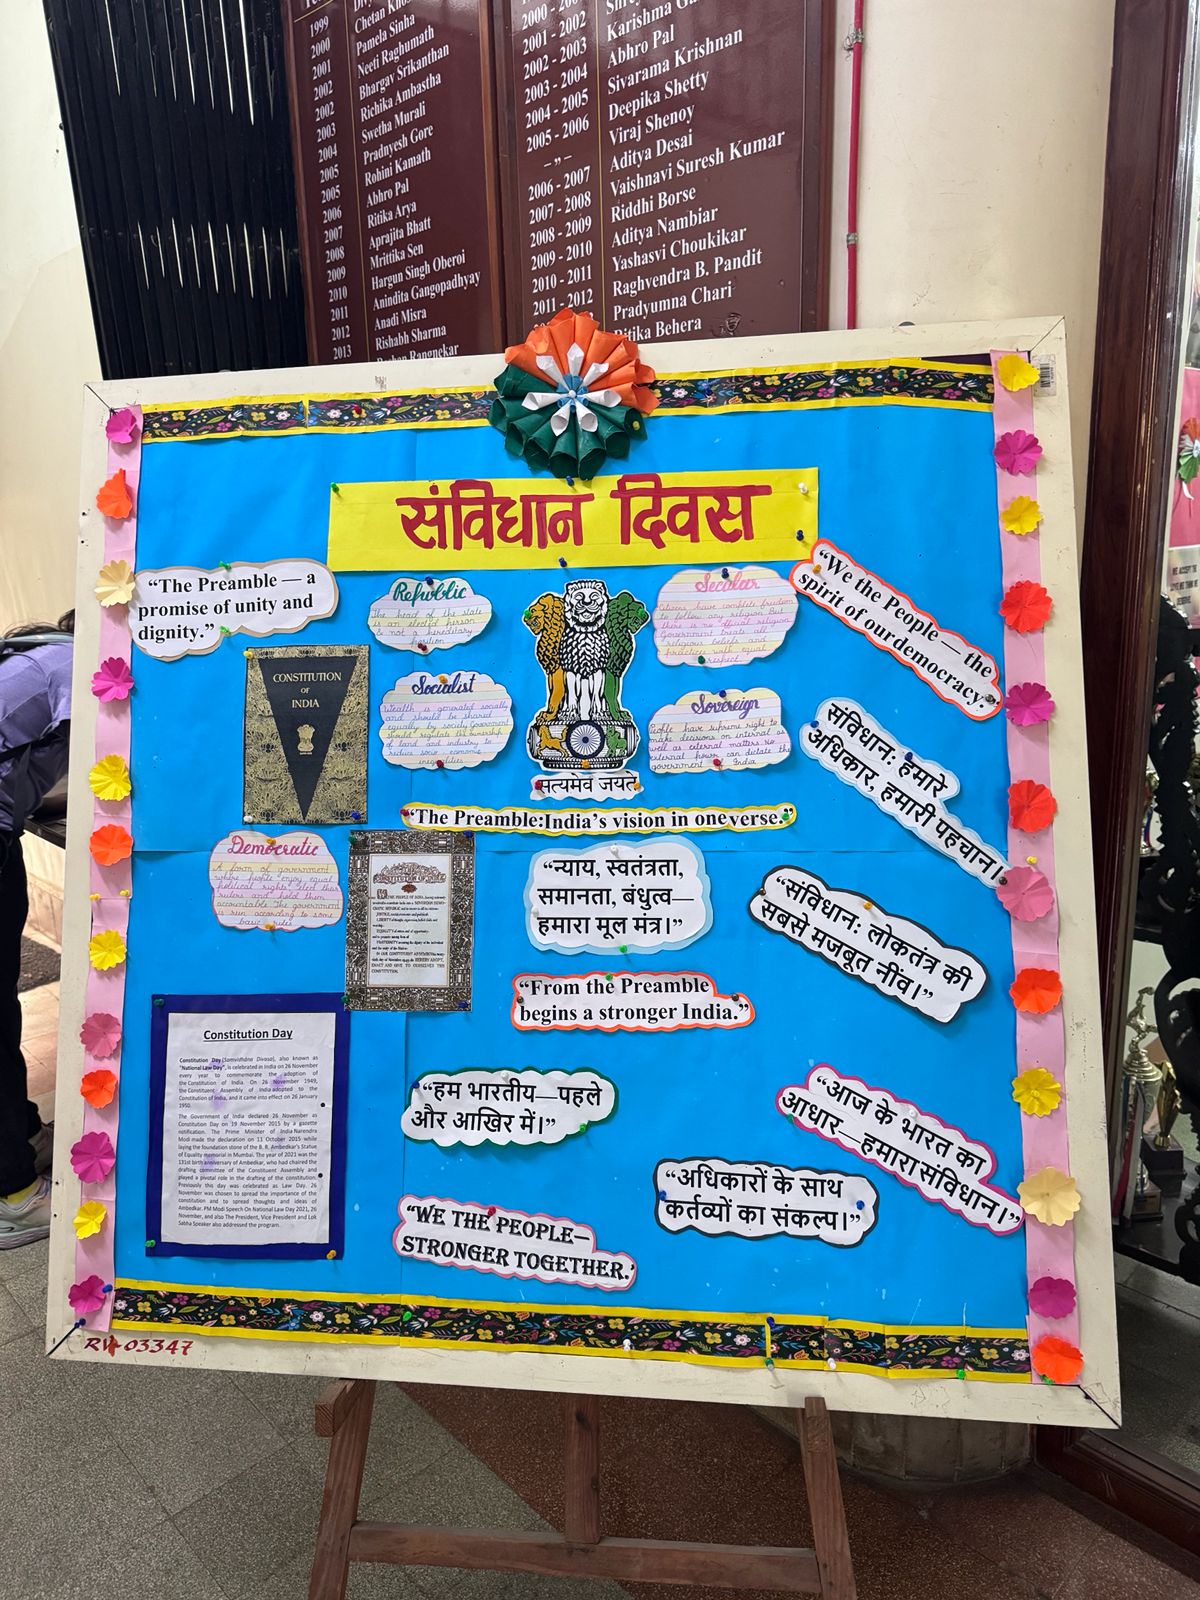 1999
2000
2001
2002
2002
2003
2004
2005
2005
2006
2007
2008
2009
2010
2011
2012
2013
Chetan
Pamela Sinha
Neeti Raghumath
Bhargav Srikanthan
Richika Ambastha
Swetha Murali
Pradnyesh Gore
Rohini Kamath
Abhro Pal
Ritika Arya
Aprajita Bhatt
Mrittika Sen
Hargun Singh Oberoi
Anindita Gangopadhyay
Anadi Misra
Rishabh Sharma
Rangnekar
2001 - 2002
2002 - 2003
2003 - 2004
2004 - 2005
2005 - 2006
- ,, -
2006 - 2007
2007 - 2008
2008 - 2009
2009 - 2010
2010 - 2011
2011 - 2012
Karishma
Abhro Pal
Sivarama Krishnan
Deepika Shetty
Viraj Shenoy
Aditya Desai
Vaishnavi Suresh Kumar
Riddhi Borse
Aditya Nambiar
Yashasvi Choukikar
Raghvendra B. Pandit
Pradyumna Chari
Ritika Behera
संविधान दिवस
“The Preamble — a
promise of unity and
dignity.”
Republic
The head of the state
is an elected person
&amp; not a hereditary
position
Secular
Citizens have complete freedom
to follow any religion. But
there is no official religion
Government treats all
religious beliefs and
practices with equal
respect.
“We the People— the
spirit of our democracy.”
CONSTITUTION
OF
INDIA
Socialist
Wealth is generated socially
and should be shared
equally by society. Government
should regulate the ownership
of land and industry to
reduce socio economic
inequalities
Sovereign
People have supreme right to
make decisions on internal as
well as external matters. No
external power can dictate the
government of India
सत्यमेव जयते
संविधान: हमारे
अधिकार, हमारी पहचान।
“The Preamble:India’s vision in one verse.”
Democratic
A form of government
where people enjoy equal
political rights, elect their
rulers and hold them
accountable. The government
is run according to some
basic rules
“न्याय, स्वतंत्रता,
समानता, बंधुत्व—
हमारा मूल मंत्र।”
“संविधान: लोकतंत्र की
सबसे मजबूत नींव।”
“From the Preamble
begins a stronger India.”
Constitution Day
Constitution Day (Samvidhāna Divasa), also known as
"National Law Day", is celebrated in India on 26 November
every year to commemorate the adoption of
the Constitution of India. On 26 November 1949,
the Constituent Assembly of India adopted the
Constitution of India, and it came into effect on 26 January
1950.
The Government of India declared 26 November as
Constitution Day on 19 November 2015 by a gazette
notification. The Prime Minister of India Narendra
Modi made the declaration on 11 October 2015 while
laying the foundation stone of the B. R. Ambedkar's Statue
of Equality memorial in Mumbai. The year of 2021 was the
131st birth anniversary of Ambedkar, who had chaired the
drafting committee of the Constituent Assembly and
played a pivotal role in the drafting of the constitution.
Previously this day was celebrated as Law Day. 26
November was chosen to spread the importance of the
constitution and to spread thoughts and ideas of
Ambedkar. PM Modi Speech On National Law Day 2021, 26
November, and also The President, Vice President and Lok
Sabha Speaker also addressed the program.
“हम भारतीय—पहले
और आखिर में।”
“आज के भारत का
आधार—हमारा संविधान।”
“अधिकारों के साथ
कर्तव्यों का संकल्प।”
“WE THE PEOPLE—
STRONGER TOGETHER.’
03347